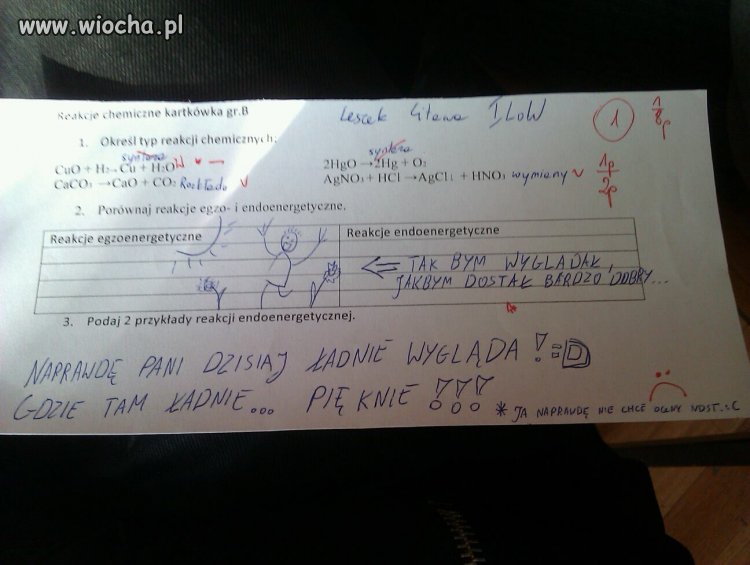 www.wiocha.pl
Reakcje chemiczne kartkówka gr.B
Leszek I LOW
1
1/8p
1. Określ typ reakcji chemicznych:
synteza
CuO + H₂→Cu + H₂O W
synteza
2HgO →2Hg + O₂
1p/2p
CaCO₃ →CaO + CO₂ Rozkłado
AgNO₃ + HCl →AgCl↓ + HNO₃ wymiany
2. Porównaj reakcje egzo- i endoenergetyczne.
Reakcje egzoenergetyczne
Reakcje endoenergetyczne
⇐ TAK BYM WYGLĄDAŁ,
JAKBYM DOSTAŁ BARDZO DOBRY...
3. Podaj 2 przykłady reakcji endoenergetycznej.
NAPRAWDĘ PANI DZISIAJ ŁADNIE WYGLĄDA! =D
GDZIE TAM ŁADNIE... PIĘKNIE!!!
* JA NAPRAWDĘ NIE CHCĘ OCENY NDST. :C